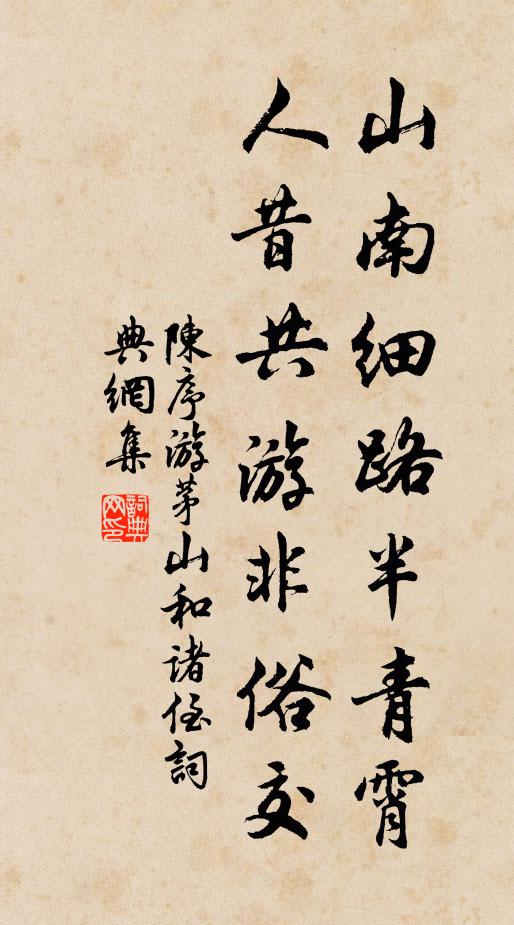 山南細路半青霄
人昔共游非俗交
陳序游茅山和諸侄詞
典網集
詞典
网印